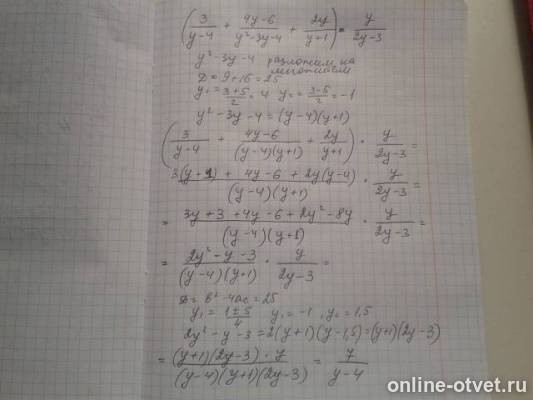 (3/(y-4) + (4y-6)/(y²-3y-4) + 2y/(y+1)) · y/(2y-3)
y²-3y-4 разложим на множители
D = 9+16 = 25
y₁ = (3+5)/2 = 4 y₂ = (3-5)/2 = -1
y²-3y-4 = (y-4)(y+1)
(3/(y-4) + (4y-6)/((y-4)(y+1)) + 2y/(y+1)) · y/(2y-3) =
(3(y+1) + 4y-6 + 2y(y-4))/((y-4)(y+1)) · y/(2y-3) =
= (3y+3+4y-6+2y²-8y)/((y-4)(y+1)) · y/(2y-3) =
= (2y²-y-3)/((y-4)(y+1)) · y/(2y-3) =
D = b²-4ac = 25
y₁ = (1±5)/4 y₁ = -1, y₂ = 1,5
2y²-y-3 = 2(y+1)(y-1,5) = (y+1)(2y-3)
= ((y+1)(2y-3)·y)/((y-4)(y+1)(2y-3)) = y/(y-4)
online-otvet.ru